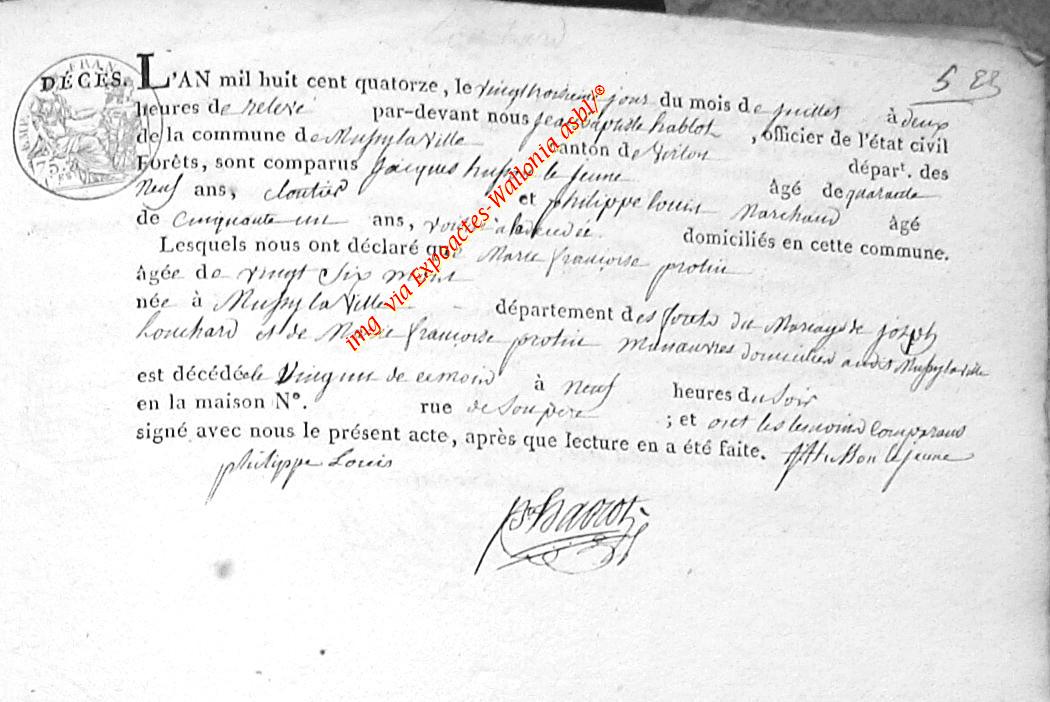 5 23
DÉCÈS. L'AN mil huit cent quatorze, le vingt troisieme jour du mois de juillet à deux
heures de relevé par-devant nous jean baptiste hablot, officier de l'état civil
de la commune de Mussy la Ville canton de Virton départ. des
Forêts, sont comparus Jacques husson le jeune âgé de quarante
Neuf ans, cloutier et philippe louis Marchand âgé
de cinquante un ans, domiciliés en cette commune.
Lesquels nous ont déclaré que Marie françoise protin
âgée de vingt Six
née à Mussy la Ville département des forets du Mareage de joseph
bouchard et de Marie francoise protin Manœuvres domiciliés audit Mussy la ville
est décédée le Vingt un de ce mois à neuf heures du Soir
en la maison N°. rue de Son pere ; et ont les temoins Comparans
signé avec nous le présent acte, après que lecture en a été faite. husson le jeune
philippe Louis
img via Expoactes-Wallonia asbl/®